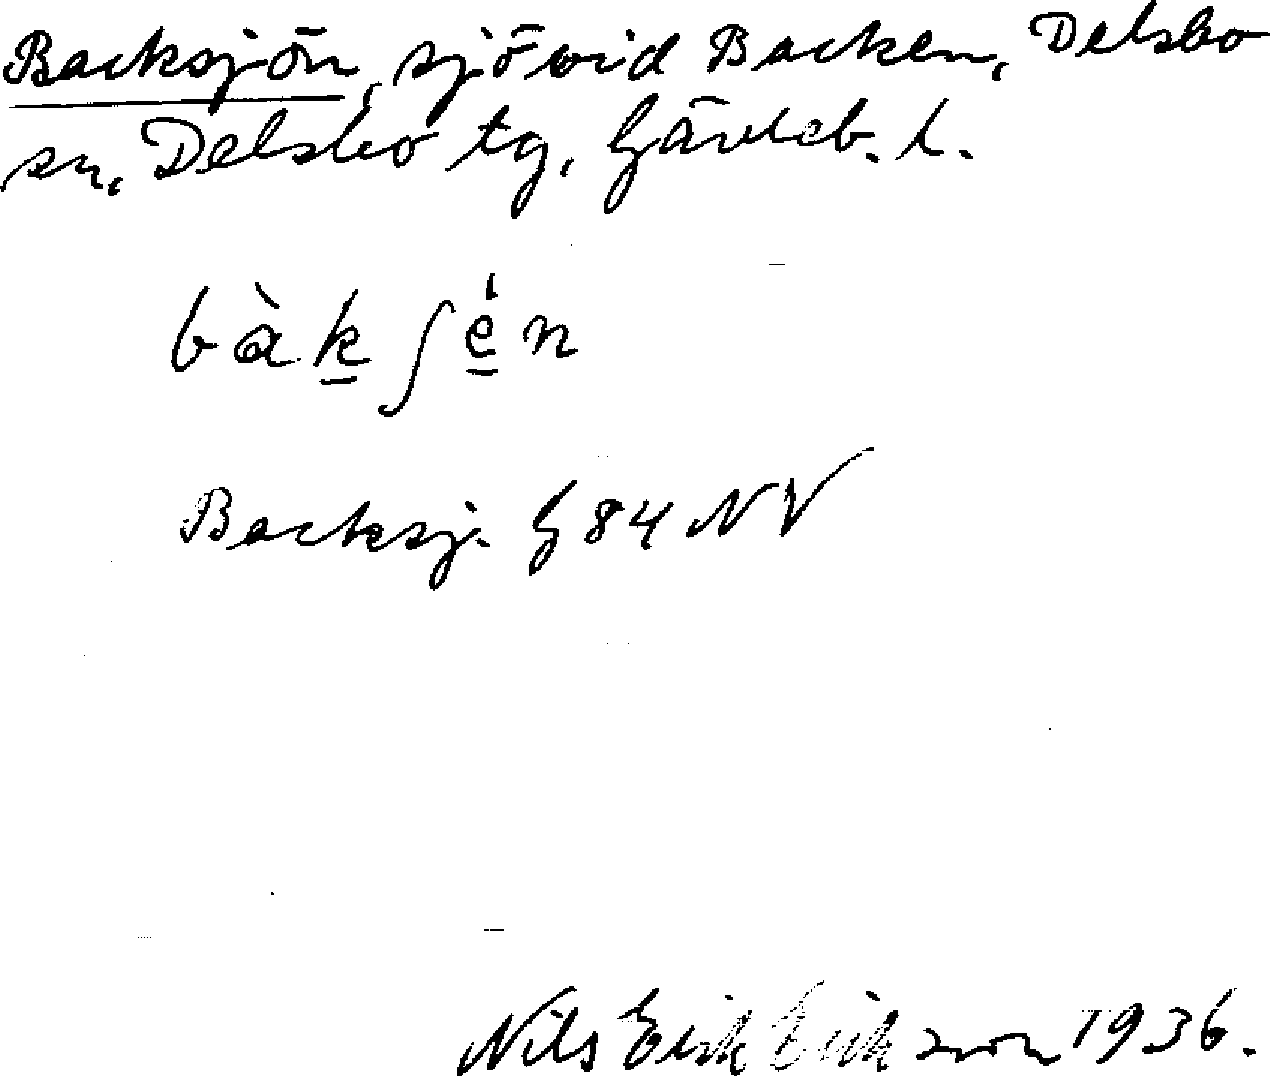 Backsjön, sjö vid Backen, Delsbo
sn, Delsbo tg, Gävleb. l.
bàkʃén
Backsj. G 84 NV
Nils Erik Eriksson 1936.